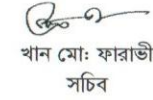 খান মোঃ ফারাভী
সচিব